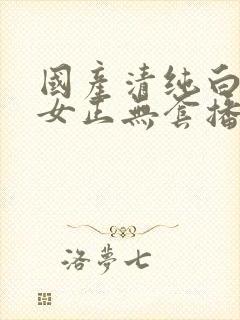 國產清純白
女正無套播
洛夢七